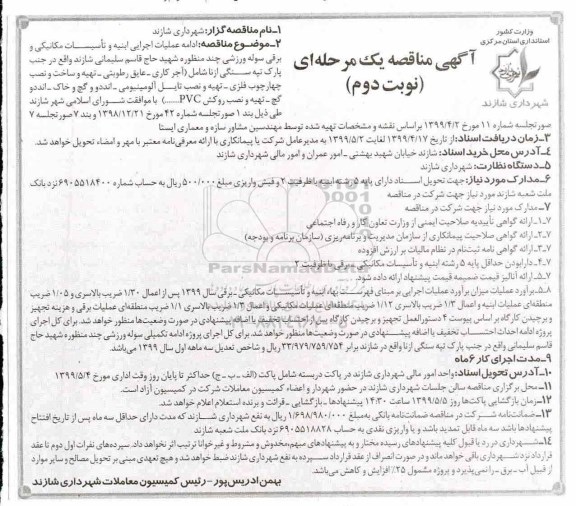 وزارت کشور
استانداری استان مرکزی
شهرداری شازند
آگهی مناقصه یک مرحله‌ای
(نوبت دوم)
۱-نام مناقصه‌گزار: شهرداری شازند
۲-موضوع مناقصه: ادامه عملیات اجرایی ابنیه و تأسیسات مکانیکی و
برقی سوله ورزشی چند منظوره شهید حاج قاسم سلیمانی شازند واقع در جنب
پارک تپه سنگی ازنا شامل (آجر کاری -عایق رطوبتی -تهیه و ساخت و نصب
چهارچوب فلزی -تهیه و نصب تایل آلومینیومی -اندود و گچ و خاک -اندود
گچ -تهیه و نصب روکش PVC......) با موافقت شورای اسلامی شهر شازند
طی ذیل بند ۱ صورتجلسه شماره ۴۲ مورخ ۱۳۹۸/۱۲/۲۱ و بند ۷ صورتجلسه ۷
صورتجلسه شماره ۱۱ مورخ ۱۳۹۹/۴/۲ براساس نقشه و مشخصات تهیه شده توسط مهندسین مشاور سازه و معماری ایستا
۳-زمان دریافت اسناد: از تاریخ ۱۳۹۹/۴/۱۷ لغایت ۱۳۹۹/۵/۲ به مدیرعامل شرکت یا پیمانکاری با ارائه معرفی‌نامه معتبر با مهر و امضاء تحویل خواهد شد.
۴-آدرس محل خرید اسناد: شازند خیابان شهید بهشتی -امور عمران و امور مالی شهرداری شازند
۵-دستگاه نظارت: شهرداری شازند
۶-مدارک مورد نیاز: جهت تحویل اسناد دارای پایه ۵ رشته ابنیه با ظرفیت ۲ و فیش واریزی مبلغ ۵۰۰/۰۰۰ ریال به حساب شماره ۶۹۰۵۵۱۸۴۰۰ نزد بانک
ملت شعبه شازند مورد نیاز جهت شرکت در مناقصه
۷-مدارک مورد نیاز جهت شرکت در مناقصه
۷-۱-ارائه گواهی تأییدیه صلاحیت ایمنی از وزارت تعاون کار و رفاه اجتماعی
۷-۲-ارائه گواهی صلاحیت پیمانکاری از سازمان مدیریت و برنامه‌ریزی (سازمان برنامه و بودجه)
۷-۳-ارائه گواهی نامه ثبت‌نام در نظام مالیات بر ارزش افزوده
۷-۴-دارابودن حداقل پایه ۵ رشته ابنیه و تأسیسات مکانیکی -برقی با ظرفیت ۲
۷-۵-ارائه آنالیز قیمت ضمیمه قیمت پیشنهاد ارائه داده شود.
۸-برآورد عملیات میزان برآورد عملیات اجرایی بر مبنای فهرست بهاء ابنیه و تأسیسات مکانیکی -برقی سال ۱۳۹۹ پس از اعمال ۱/۳۰ ضریب بالاسری و ۱/۰۵ ضریب
منطقه‌ای عملیات ابنیه و اعمال ۱/۳ ضریب بالاسری ۱/۱۲ ضریب منطقه‌ای عملیات مکانیکی و اعمال ۱/۳ ضریب بالاسری ۱/۱ ضریب منطقه‌ای عملیات برقی و هزینه تجهیز
و برچیدن کارگاه بر اساس پیوست ۴ دستورالعمل تجهیز و برچیدن کارگاه بدون احتساب تخفیف یا اضافه پیشنهادی در صورت وضعیت‌ها منظور خواهد شد. برای کل اجرای
پروژه ادامه احداث احتساب تخفیف یا اضافه پیشنهادی در صورت‌وضعیت‌ها منظور خواهد شد. برای کل اجرای پروژه ادامه تکمیلی سوله ورزشی چند منظوره شهید حاج
قاسم سلیمانی واقع در جنب پارک تپه سنگی ازنا واقع در شازند برابر ۳۳/۹۷۹/۷۵۹/۷۵۴ ریال و شاخص تعدیل سه ماهه اول سال ۱۳۹۹ می‌باشد.
۹-مدت اجرای کار ۶ ماه
۱۰-آدرس تحویل اسناد: واحد امور مالی شهرداری شازند در پاکت دربسته شامل پاکت (الف -ب -ج) حداکثر تا پایان روز وقت اداری مورخ ۱۳۹۹/۵/۴
۱۱-محل برگزاری مناقصه سالن جلسات شهرداری شازند در حضور شهردار و اعضاء کمیسیون معاملات شرکت در کمیسیون آزاد است.
۱۲-زمان بازگشایی پاکت‌ها روز ۱۳۹۹/۵/۵ ساعت ۱۴:۳۰ پیشنهادها -بازگشایی -قرائت و برنده استعلام اعلام خواهد شد.
۱۳-ضمانت‌نامه شرکت در مناقصه ضمانت‌نامه بانکی به‌مبلغ ۱/۶۹۸/۹۸۰/۰۰۰ ریال به نفع شهرداری شازند که مدت دارای حداقل سه ماه پس از تاریخ افتتاح
پیشنهادها باشد سه ماه قابل تمدید باشد و یا واریزی نقدی به حساب ۶۹۰۵۵۱۸۸۲۸ نزد بانک ملت شعبه شازند
۱۴-شهرداری در رد یا قبول کلیه پیشنهادهای رسیده مختار و به پیشنهادهای مبهم مخدوش و مشروط و غیرخوانا ترتیب اثر نخواهد داد. سپرده‌های نفرات اول دوم تا عقد
قرارداد نزد شهرداری باقی خواهد ماند و در صورت انصراف از عقد قرارداد سپرده به نفع شهرداری شازند ضبط خواهد شد و هیچ تعهدی مبنی بر تحویل مصالح و سایر موارد
از قبیل آب -برق -را نمی‌پذیرد و پروژه مشمول ۲۵٪ افزایش و کاهش می‌باشد.
بهمن ادریس‌پور -رئیس کمیسیون معاملات شهرداری شازند